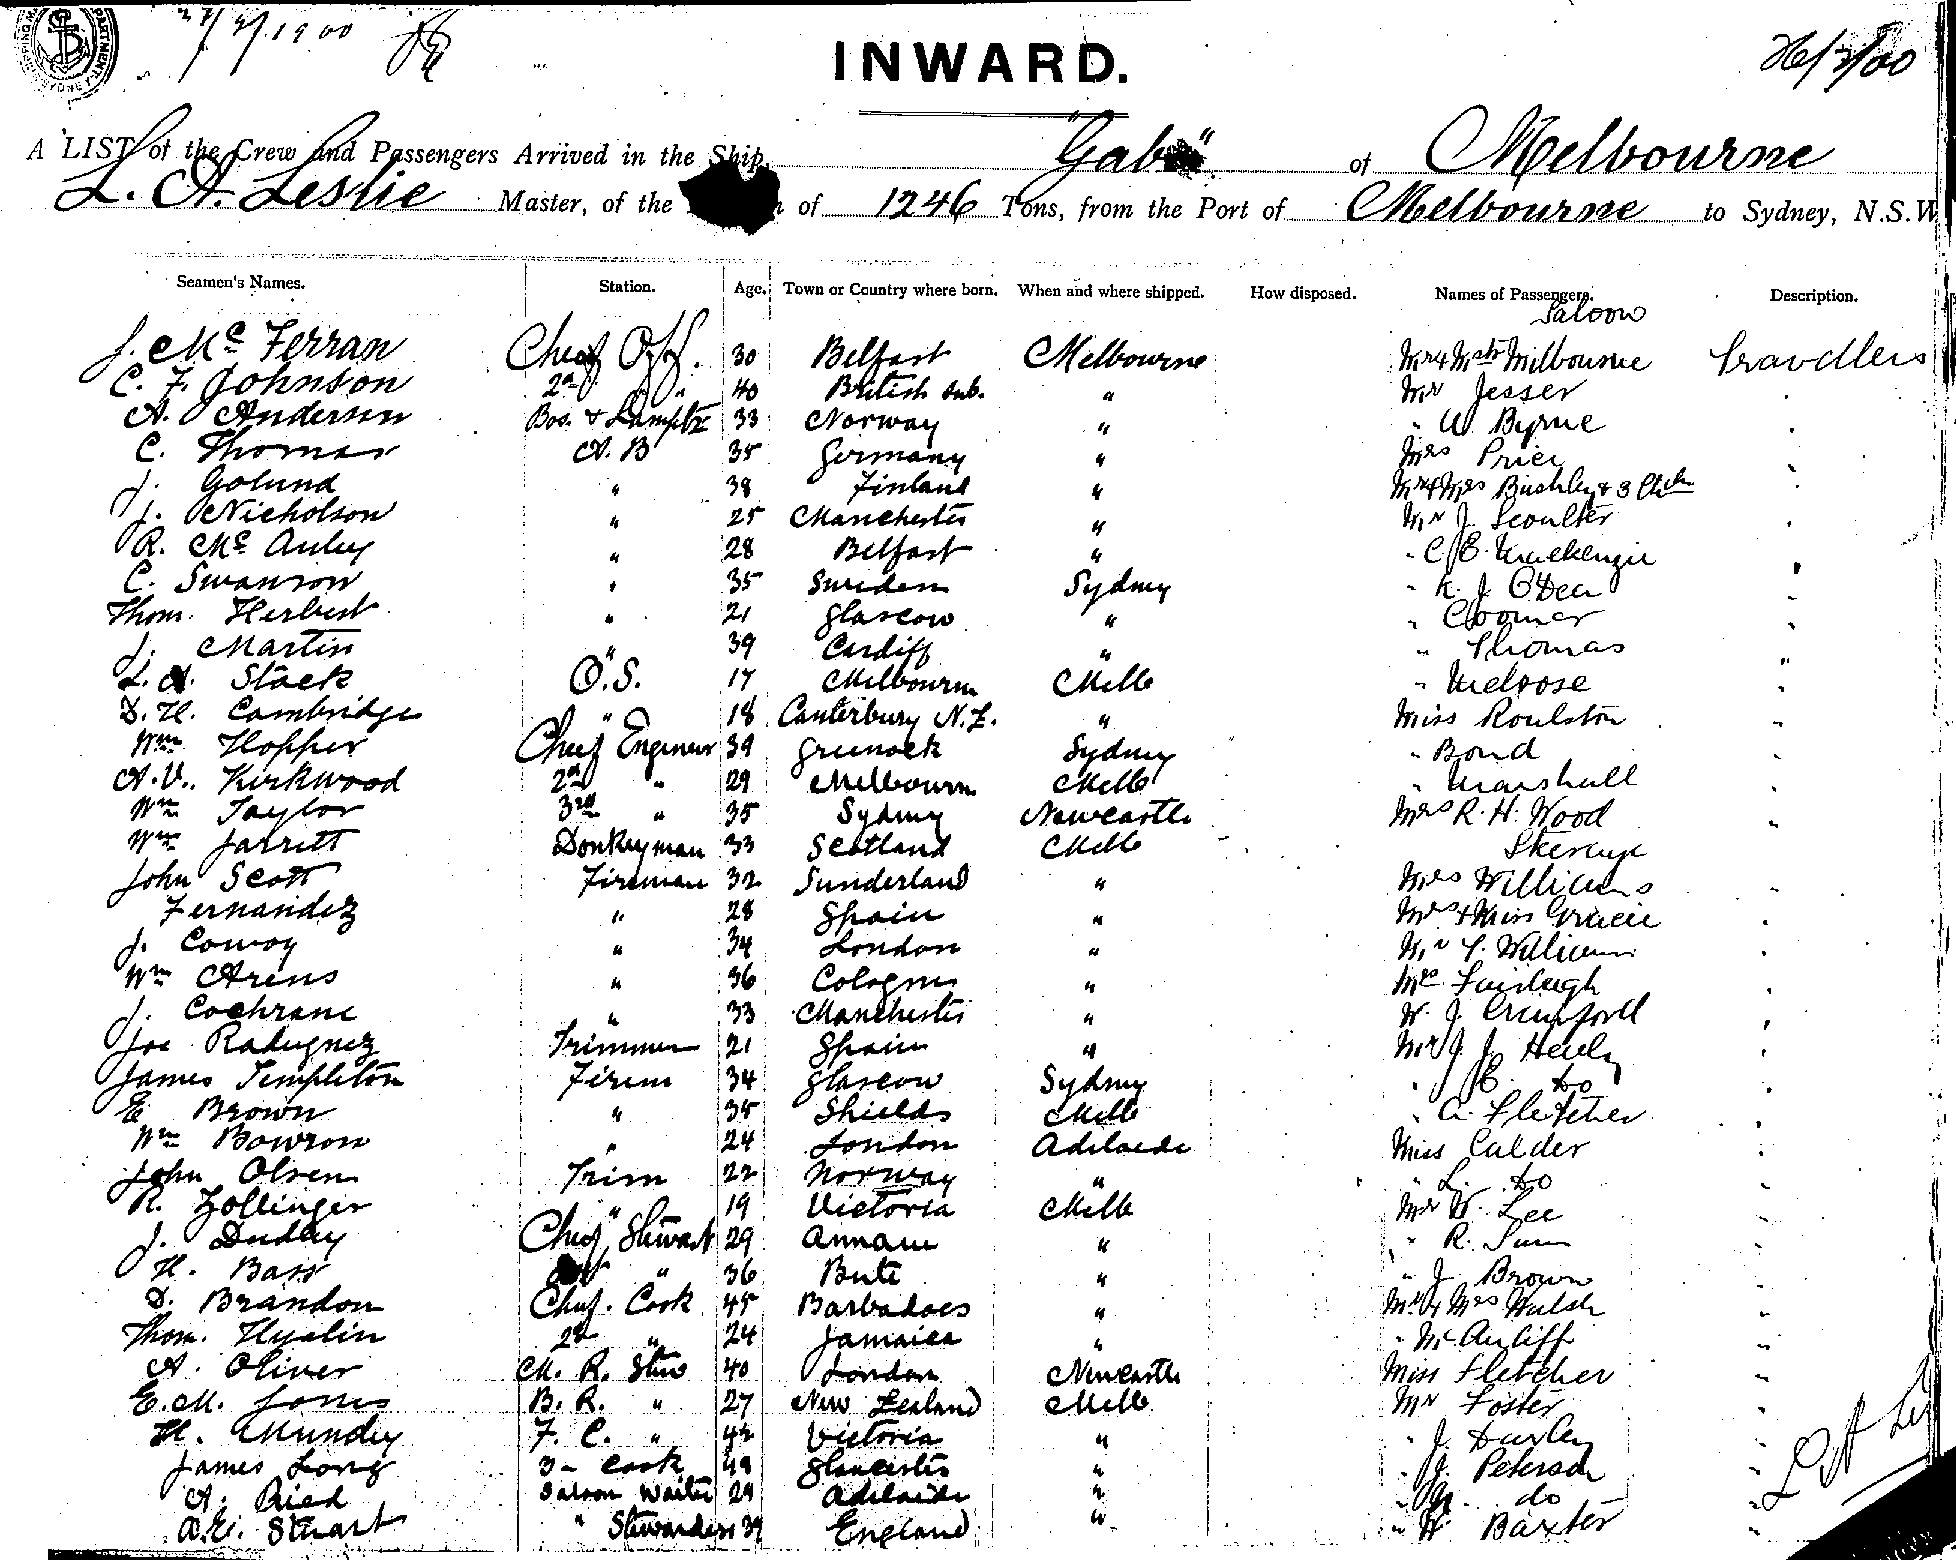 27/2/1900
INWARD.
26/2/00
A LIST of the Crew and Passengers Arrived in the Ship "Gabo" of Melbourne
L. A. Leslie Master, of the of 1246 Tons, from the Port of Melbourne to Sydney, N.S.W
Seamen's Names. Station. Age. Town or Country where born. When and where shipped. How disposed. Names of Passengers. Description.
Saloon
J. Mc Ferran Chief Off. 30 Belfast Melbourne Mr & Mrs Milbourne Travellers
C. F. Johnson 2nd " " 40 British sub. " Mr Jesser
A. Andersen Bos. & Lamptr 33 Norway " " W Byrne
C. Thomas A. B 35 Germany " Mrs Price
J. Golund " 38 Finland " Mr & Mrs Bushley & 3 Chdn
J. Nicholson " 25 Manchester " Mr J. Scoulter
R. Mc Auley " 28 Belfast " " C E Mackenzie
C. Swanson " 35 Sweden Sydney " K. J. O'Dea
Thom. Herbert " 21 Glascow " " Coomer
J. Martin " 39 Cardiff " " Thomas
L. A. Stack O.S. 17 Melbourn Melb " Melrose
D. H. Cambridge " 18 Canterbury N.Z. " Miss Roulston
Wm Hopper Chief Engineer 39 Greenock Sydney " Bond
A. V. Kirkwood 2nd " 29 Melbourn Melb " Marshall
Wm Taylor 3rd " 35 Sydney Newcastle Mrs R. H. Wood
Wm Jarrett Donkeyman 33 Scotland Melb Steerage
John Scott Fireman 32 Sunderland " Mrs Williams
Fernandez " 28 Spain " Mrs & Miss Gracie
J. Convoy " 34 London " Mr T. William
Wm Arens " 36 Cologne " Mrs Fairleigh
J. Cochrane " 33 Manchester " W. J. Crawford
Joe Radugnez Trimmer 21 Spain " Mr J. J. Healy
James Templeton Firem 34 Glascow Sydney " E do
E Brown " 35 Shields Melb " A. Fletcher
Wm Bowron " 24 London Adelaide Miss Calder
John Olsen Trim 22 Norway " " L. do
R. Zollinger " 19 Victoria Melb Mr W. Lee
J. Dudley Chief Stewart 29 Annam " " R.
H. Bass " 36 Bute " " J Brown
D. Brandon Chef. Cook 45 Barbadoes " Mr & Mrs Walsh
Thom. Hyslin 2nd " 24 Jamaica " " McAuliff
A. Oliver M. R. Stew 40 London Newcastle Miss Fletcher
E. M. Jones B. R. " 27 New Zealand Melb Mr Foster
H. Munday F. C. " 42 Victoria " " J. Darley
James Long 3 - Cook 48 Gloucester " " J. Peterson
A. Ried Saloon Waiter 29 Adelaide " " do
A. E. Stuart " Stewardess 39 England " " H Baxter
L A